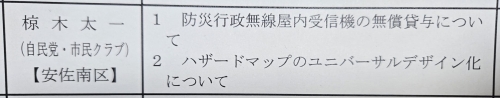 椋木太一
(自民党・市民クラブ)
【安佐南区】
1 防災行政無線屋内受信機の無償貸与につい
て
2 ハザードマップのユニバーサルデザイン化
について